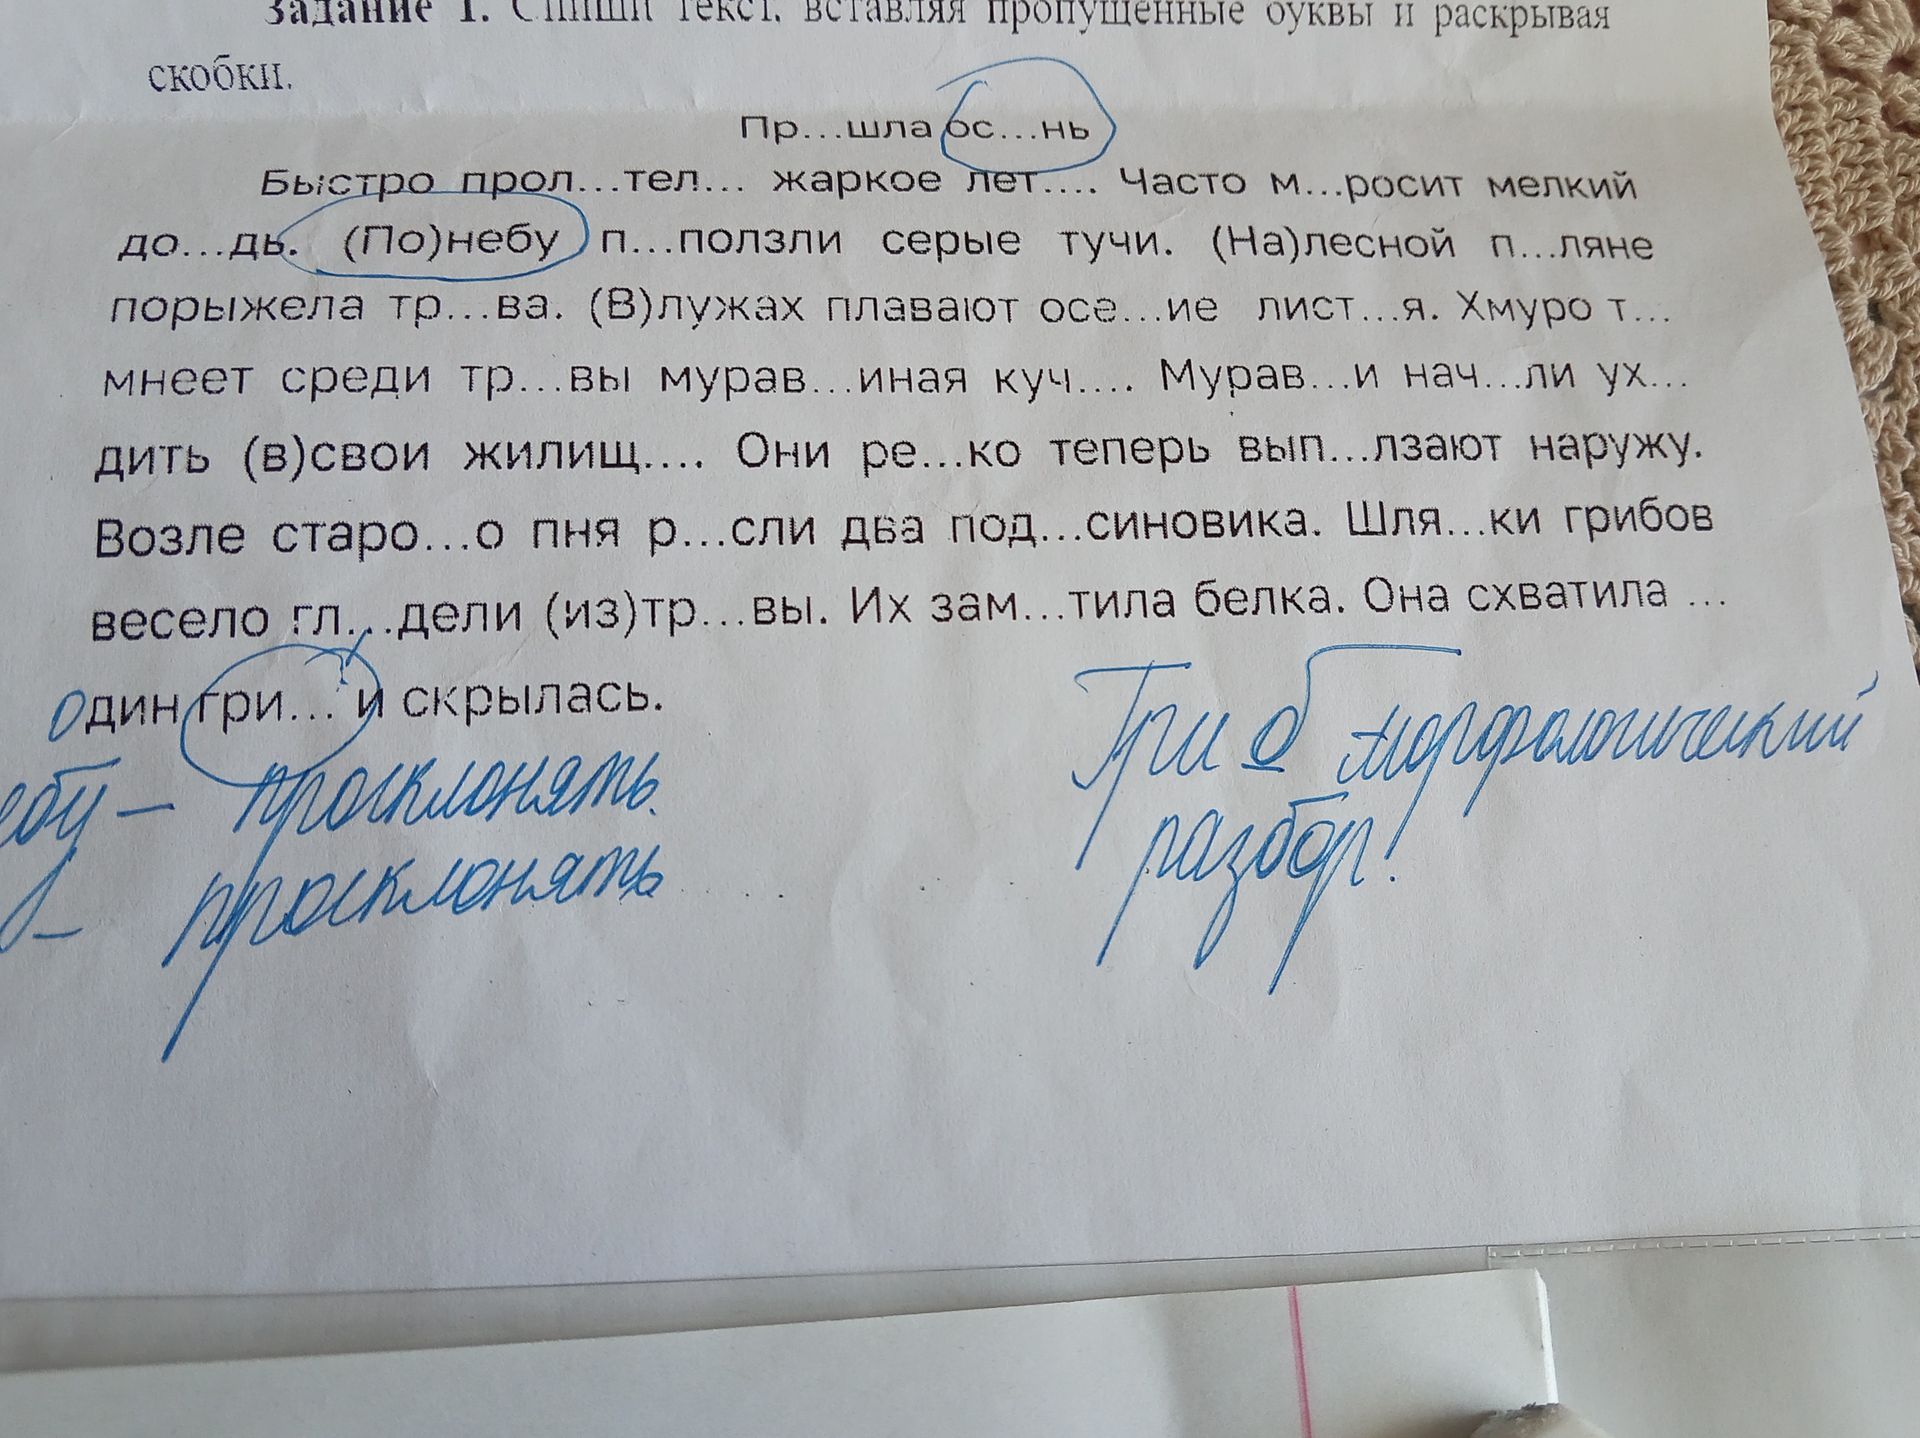 Задание 1. Спиши текст, вставляя пропущенные буквы и раскрывая
скобки.
Пр...шла ос...нь
Быстро прол...тел... жаркое лет.... Часто м...росит мелкий
до...дь. (По)небу п...ползли серые тучи. (На)лесной п...ляне
порыжела тр...ва. (В)лужах плавают осе...ие лист...я. Хмуро т...
мнеет среди тр...вы мурав...иная куч.... Мурав...и нач...ли ух...
дить (в)свои жилищ.... Они ре...ко теперь вып...лзают наружу.
Возле старо...о пня р...сли два под...синовика. Шля...ки грибов
весело гл...дели (из)тр...вы. Их зам...тила белка. Она схватила ...
один гри... и скрылась.
ебу - просклонять.
- просклонять
Гриб морфологический
разбор!